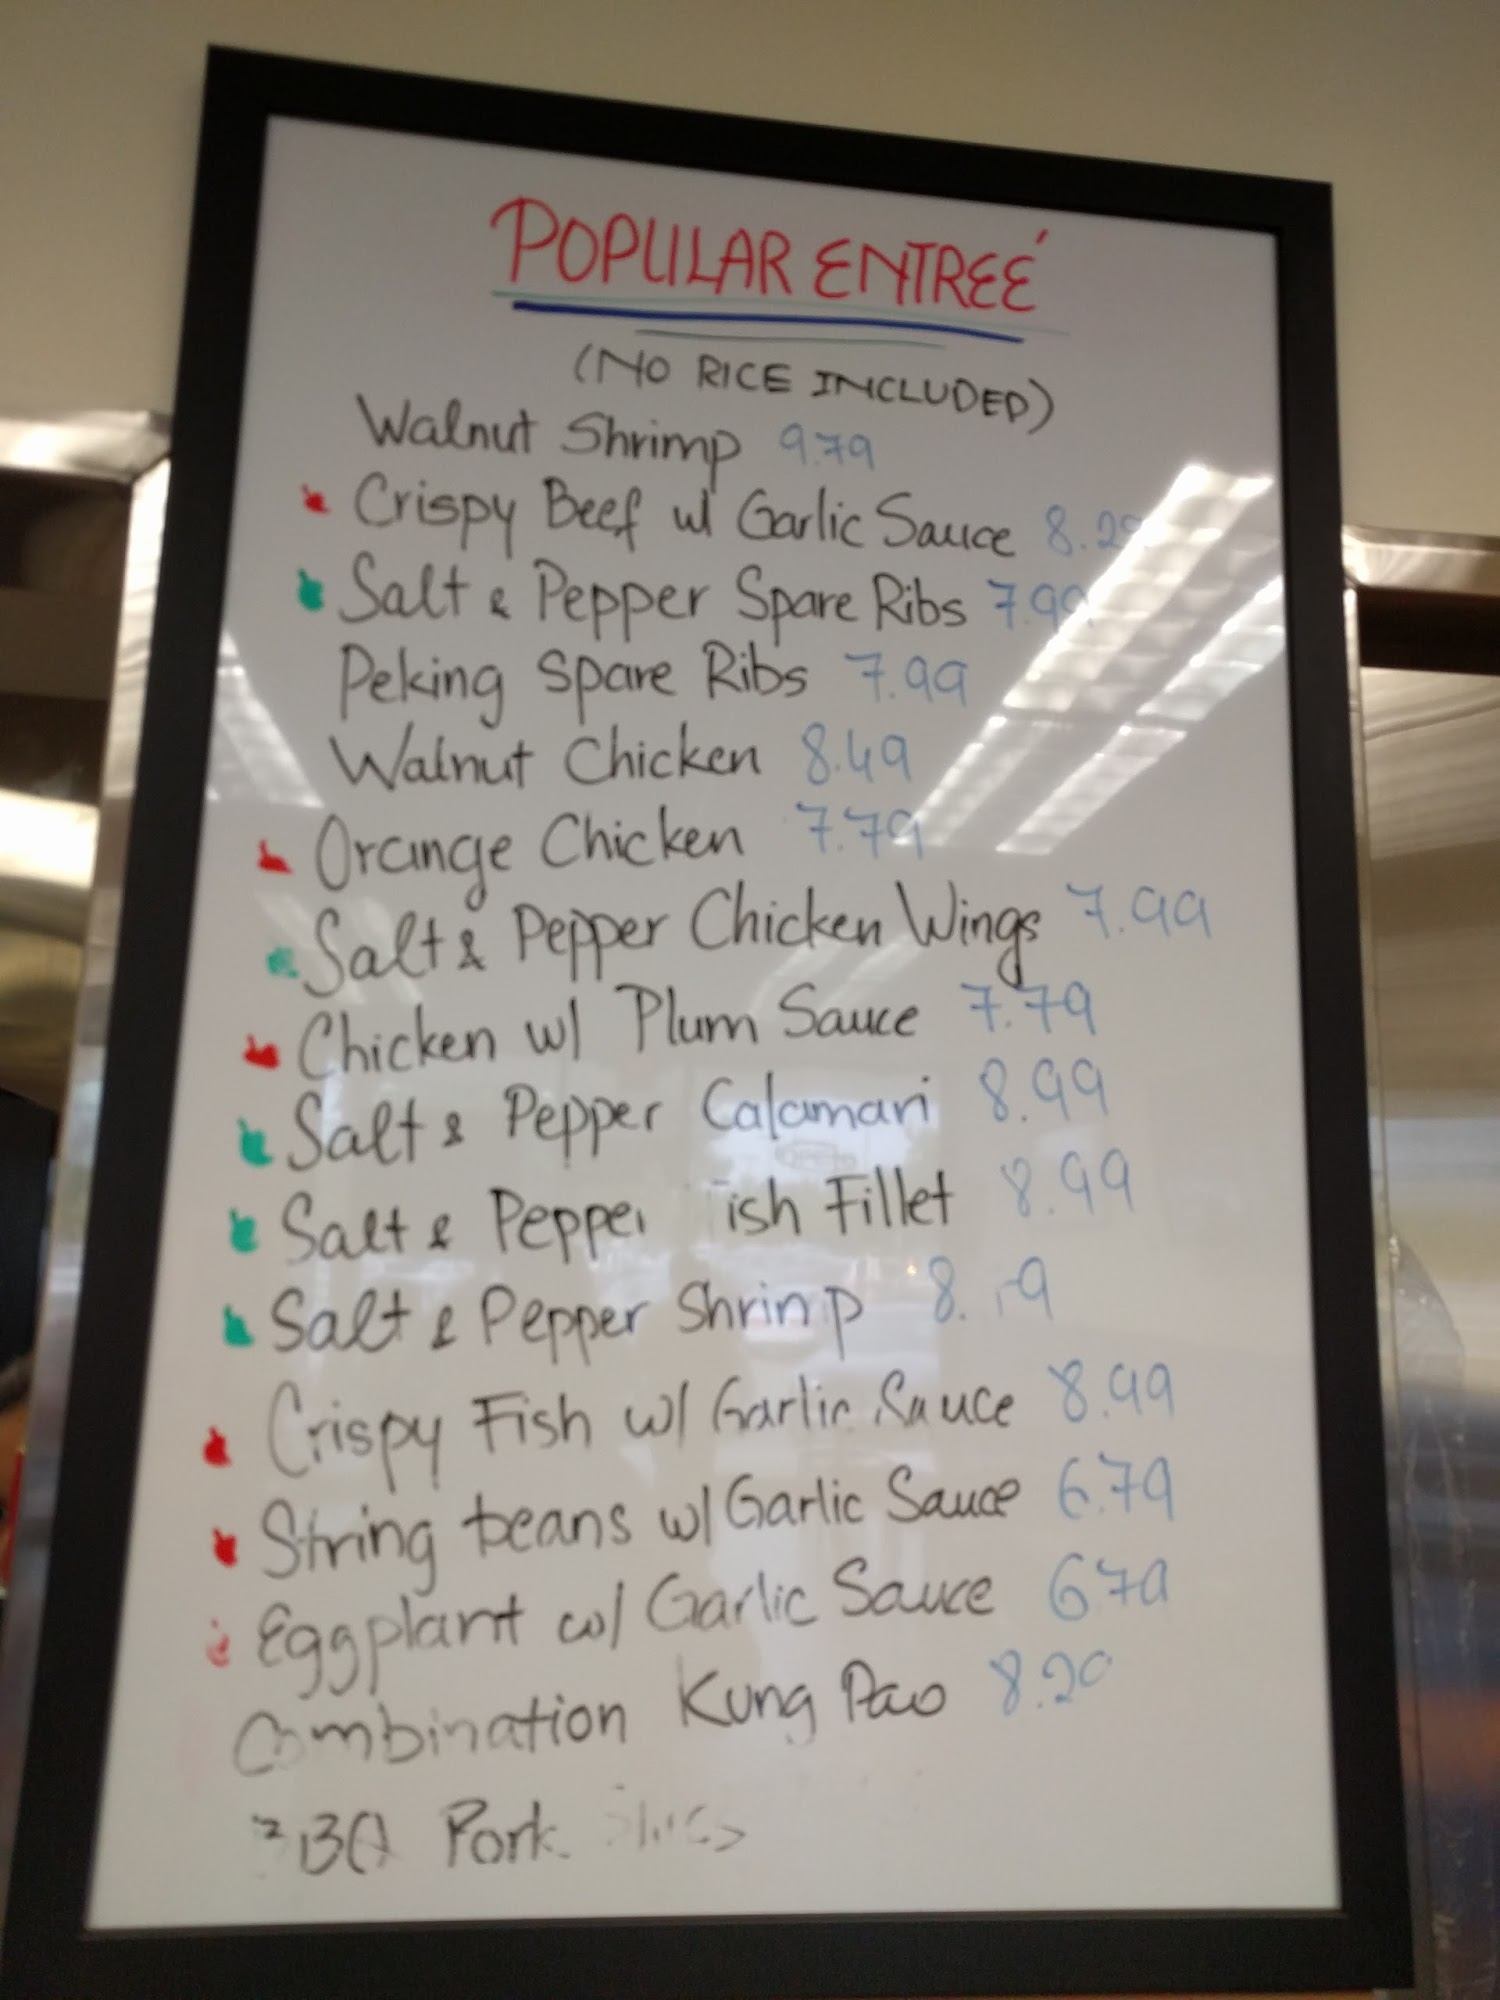 POPULAR ENTREÉ
(NO RICE INCLUDED)
Walnut Shrimp 9.79
Crispy Beef w/ Garlic Sauce
Salt & Pepper Spare Ribs 7.99
Peking Spare Ribs 7.99
Walnut Chicken 8.49
Orange Chicken 7.79
Salt & Pepper Chicken Wings 7.99
Chicken w/ Plum Sauce 7.79
Salt & Pepper Calamari 8.99
Salt & Pepper Fish Fillet 8.99
Salt & Pepper Shrimp
Crispy Fish w/ Garlic Sauce 8.99
String beans w/ Garlic Sauce 6.79
Eggplant w/ Garlic Sauce 6.79
Combination Kung Pao
BBQ Pork